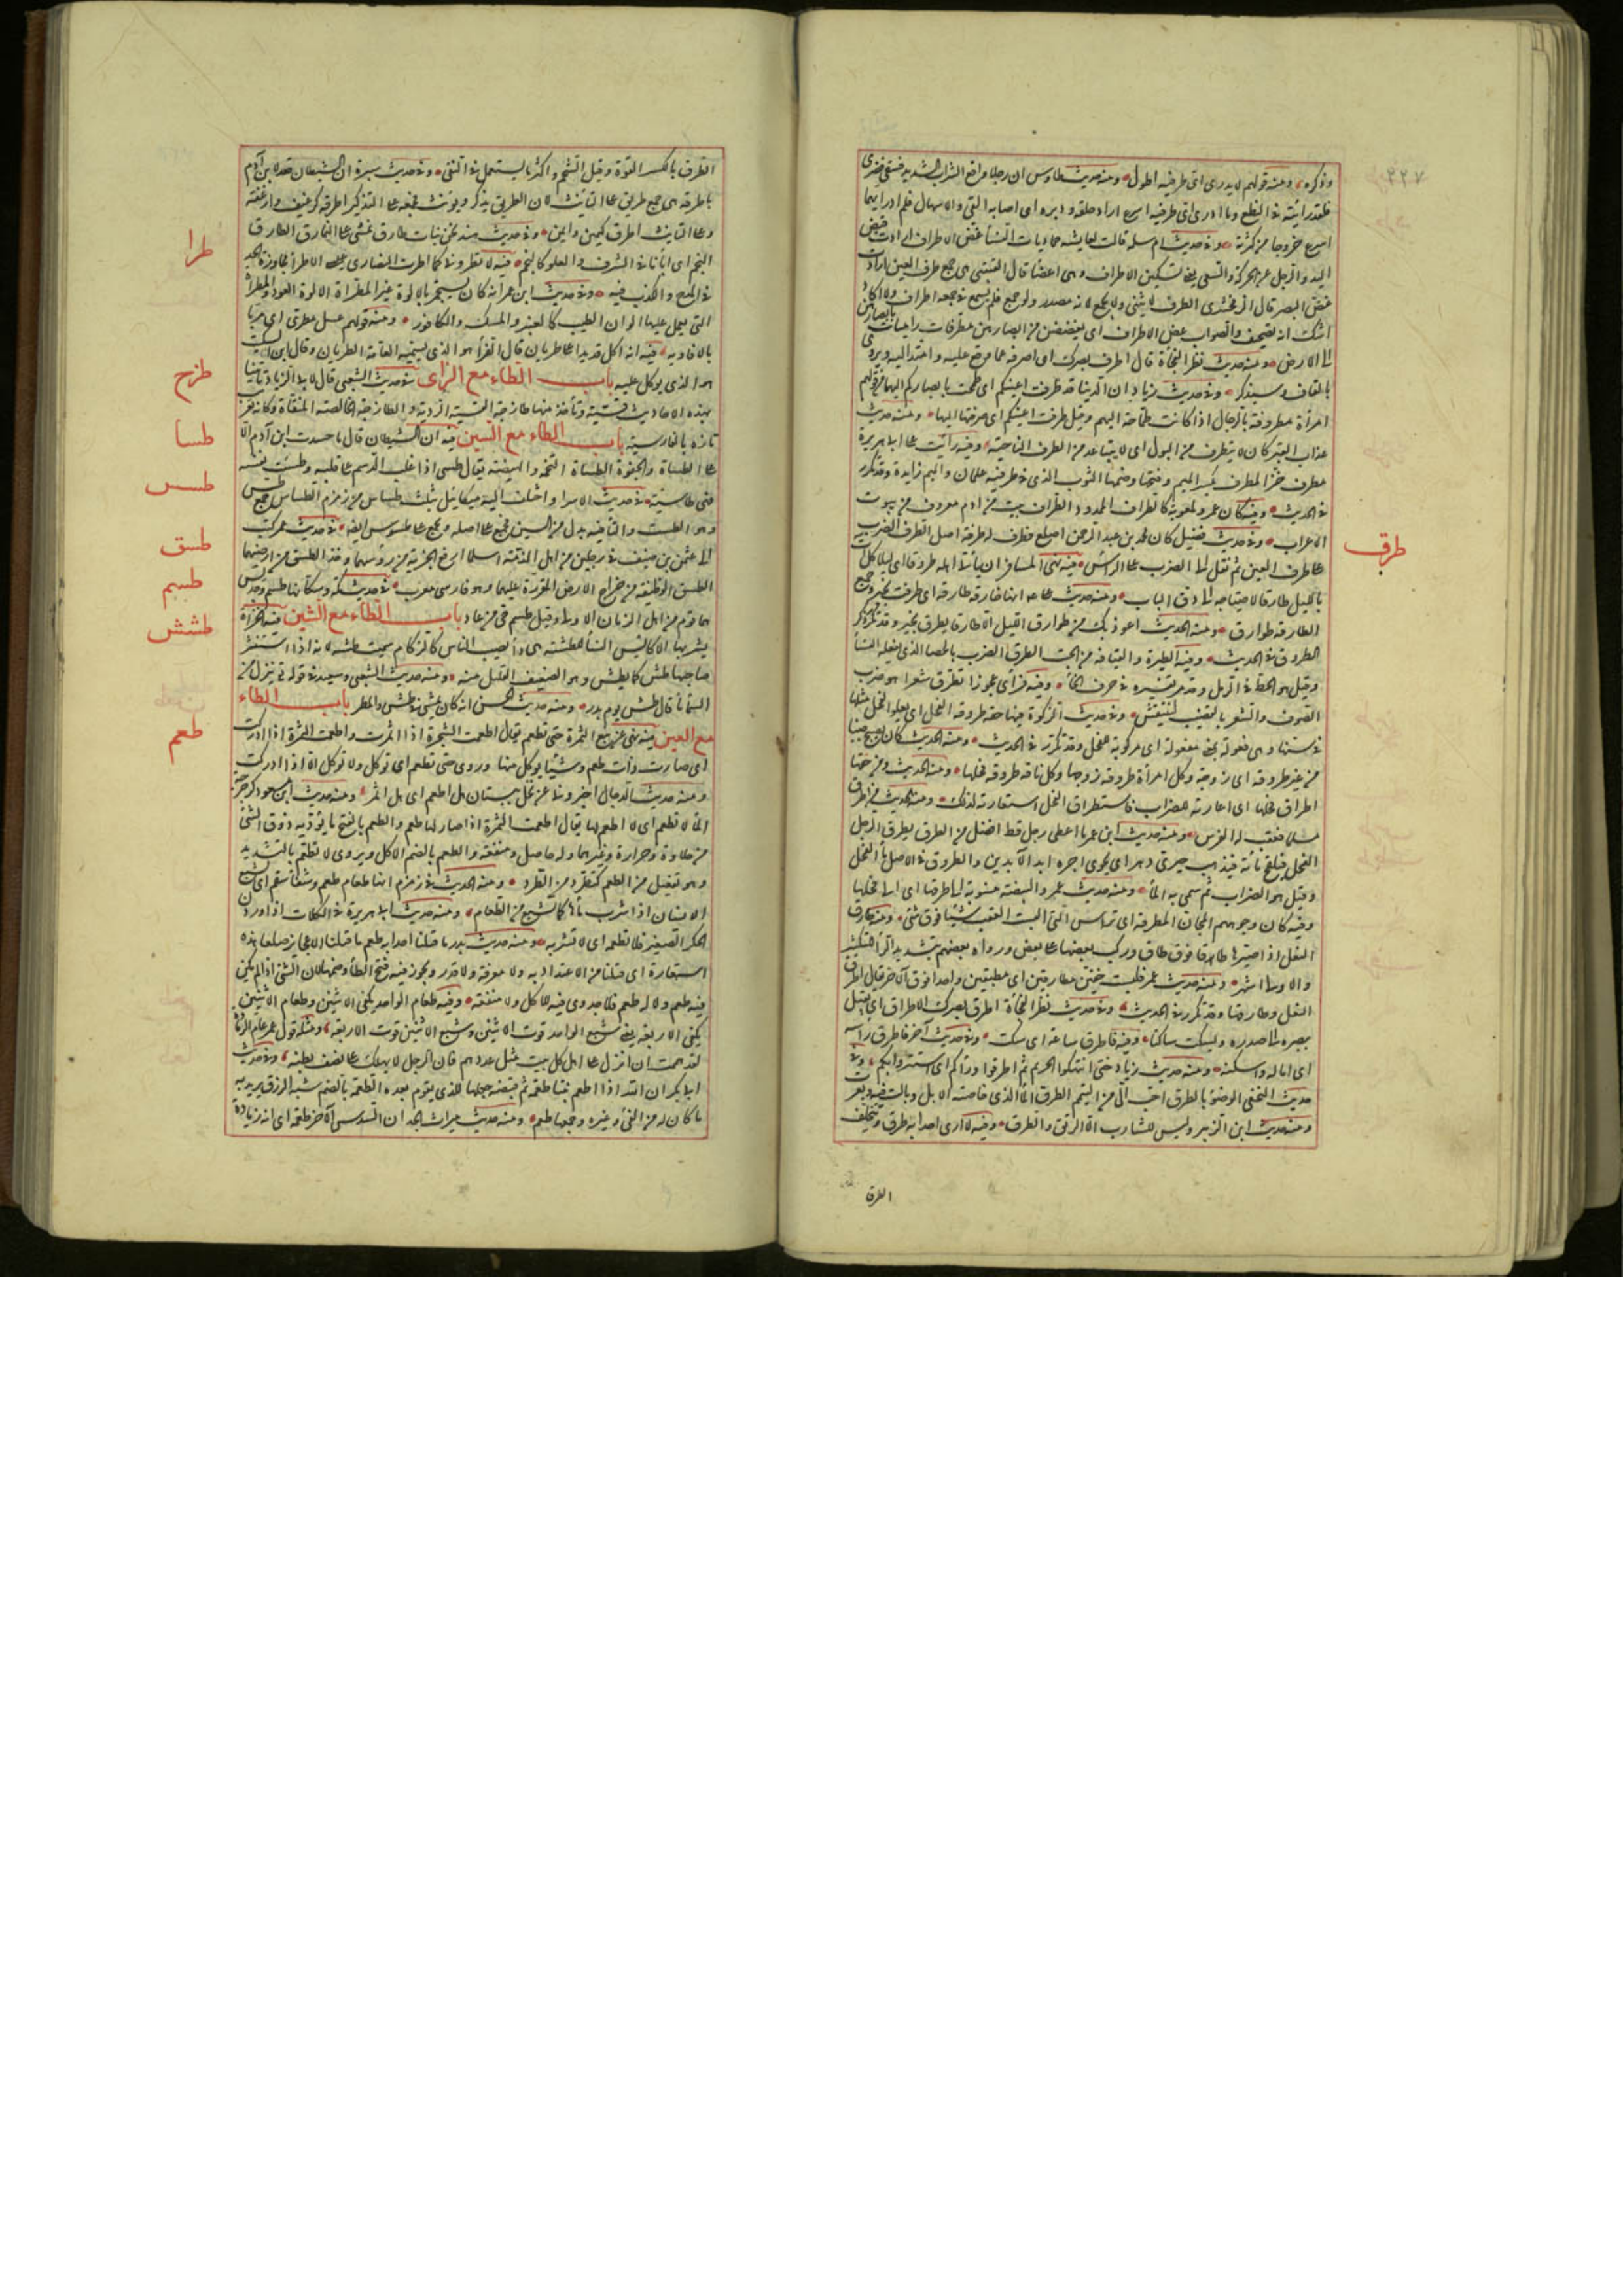 ٢٢٧
وذكره ومنه قولهم لا يدرى اى طرفيه اطول ومنه حديث طاوس ان رجلا واقع الشراب الشديد فسقى فضرى
فلقد رأيته فى النطع وما ادرى اى طرفيه اسرع اراد حلقه ودبره اى اصابه القئ والاسهال فلم ادر ايهما
اسرع خروجا من كثرته وفى حديث ام سلمة قالت لعايشة حماديات النسأ غض الاطراف ارادت قبض
اليد والرجل عن الحركة والسعى يعنى تسكين الاطراف وهى اعضأ قال القتيبى هى جمع طرف العين ارادت
غض البصر قال الزمخشرى الطرف لا يثنى ولا يجمع لانه مصدر ولو جمع فلم يسمع فى جمعه اطراف ولا اكاد
اشك انه تصحيف والصواب غض الاطراق اى يغضضن من ابصارهن مطرقات راميات بابصارهن
الى الارض ومنه حديث نظر الفجأة قال اطرف بصرك اى اصرفه عما وقع عليه وامتد اليه ويروى
بالقاف وسيذكر وفى حديث زياد ان الدنيا قد طرفت اعينكم اى طمحت بابصاركم اليها من قولهم
امرأة مطروفة بالرجال اذا كانت طماحة اليهم وقيل طرفت اعينكم اى صرفتها اليها ومنه حديث
عذاب القبر كان لا يتطرف من البول اى لا يتباعد من الطرف الناحية وفيه رأيت على ابى هريرة
مطرف خز المطرف بكسر الميم وفتحها وضمها الثوب الذى فى طرفيه علمان والميم زايدة وقد تكرر
فى الحديث وفيه كان عمرو لمعوية كالطراف الممدود الطراف بيت من ادم معروف من بيوت
الاعراب وفى حديث فضيل كان محمد بن عبد الرحمن اصلع فطرف له طرفة اصل الطرف الضرب
على طرف العين ثم نقل الى الضرب على الرأس فيه نهى المسافر ان يأتى اهله طروقا اى ليلا وكل آت
بالليل طارق لاحتياجه الى دق الباب ومنه حديث على انها خارقة طارقة اى طرقت بخير وجمع
الطارقة طوارق ومنه الحديث اعوذ بك من طوارق الليل الا طارقا يطرق بخير وقد تكرر ذكر
الطروق فى الحديث وفيه الطيرة والعيافة من الجبت الطرق الضرب بالحصا الذى يفعله النسأ
وقيل هو الخط فى الرمل وقد مر تفسيره فى حرف الخأ وفيه فرأى عجوزا تطرق شعرا هو ضرب
الصوف والشعر بالقضيب لتنتفش وفى حديث الزكوة فيها حقة طروقة الفحل اى يعلو الفحل مثلها
فى سنها وهى فعولة بمعنى مفعولة اى مركوبة للفحل وقد تكرر فى الحديث ومنه الحديث كان يصبح جنبا
من غير طروقة اى زوجة وكل امرأة طروقة زوجها وكل ناقة طروقة فحلها ومنه الحديث ومن حقها
اطراق فحلها اى اعارته للضراب فاستطراق الفحل استعارته لذلك ومنه الحديث من اطرق
مسلما فعقت له الفرس ومنه حديث ابن عمر ما اعطى رجل قط افضل من الطرق يطرق الرجل
الفحل فيلقح مائة فيذهب حيرى دهر اى يحوى اجره ابد الآبدين والطروق فى الاصل مأ الفحل
وقيل هو الضراب ثم سمى به المأ ومنه حديث عمر والبيضة منسوبة الى طرقها اى الى فحلها
وفيه كان وجوههم المجان المطرقة اى التراس التى البست العقب شيئا فوق شئ ومنه طارق
النعل اذا صيرها طاقا فوق طاق وركب بعضها على بعض ورواه بعضهم بتشديد الرأ للتكثير
والاول اشهر ومنه حديث عمر فلبست خفين مطارقين اى مطبقين واحدا فوق الآخر يقال اطرق
النعل وطارقها وقد تكرر فى الحديث وفى حديث نظر الفجأة اطرق بصرك الاطراق ان يقبل
ببصره الى صدره ويسكت ساكنا وفيه فاطرق ساعة اى سكت وفى حديث آخر فاطرق رأسه
اى اماله واسكنه ومنه حديث زياد حتى انتهكوا الحريم ثم اطرقوا وراكم اى استتروا بكم وفى
حديث النخعى الوضؤ بالطرق احب الى من التيمم الطرق المأ الذى خاضته الابل وبالت فيه وبعرت
ومنه حديث ابن الزبير وليس للشارب الا الرنق والطرق وفيه لا ارى احدا به طرق فيتخلف
طرق
الطرق
الطرق بالكسر القوة وقيل الشحم واكثر ما يستعمل فى النفى وفى حديث سبرة ان الشيطان قعد لابن آدم
باطرقه هى جمع طريق على التأنيث لان الطريق يذكر ويؤنث فجمعه على التذكير اطرقه كرغيف وارغفة
وعلى التأنيث اطرق كيمين وايمن وفى حديث هند نحن بنات طارق نمشى على النمارق الطارق
النجم اى ابأنا فى الشرف والعلو كالنجم فيه لا تطرونى كما اطرت النصارى عيسى الاطرأ مجاوزة الحد
فى المدح والكذب فيه وفى حديث ابن عمر انه كان يستجمر بالالوة غير المطراة الالوة العود والمطراة
التى يعمل عليها الوان الطيب كالعنبر والمسك والكافور ومنه قولهم عسل مطرى اى مربا
بالافاويه فيه انه اكل قديدا على طريان قال الفرأ هو الذى يسميه العامة الطريان وقال ابن السكيت
هو الذى يوكل عليه باب الطاء مع الزاى فى حديث الشعبى قال لابى الزناد تأتينا
بهذه الاحاديث قسية وتأخذها منا طازجة القسية الردية والطازجة الخالصة المنقاة وكانه تعريب
تازه بالفارسية باب الطاء مع السين فيه ان الشيطان قال ما حسدت ابن آدم الا
على الطسأة والحقوة الطسأة التخمة والهيضة يقال طسى اذا غلب الدسم على قلبه وطسئت نفسه
فهى طاسئة فى حديث الاسرا واختلف اليه ميكائيل بثلث طساس من زمزم الطساس جمع طس
وهو الطست والتأ فيه بدل من السين فجمع على اصله ويجمع على طسوس ايضا فى حديث عمر كتب
الى عثمن بن حنيف فى رجلين من اهل الذمة اسلما ارفع الجزية من رؤسهما وخذ الطسق من ارضيهما
الطسق الوظيفة من خراج الارض المقررة عليها وهو فارسى معرب فى حديث مكة وسكانها طسم وجديس
هما قوم من اهل الزمان الاول وقيل طسم حى من عاد باب الطاء مع الشين فيه الحزأة
يشربها اكايس النسأ للطشة هى دأ يصيب الناس كالزكام سميت طشة لانه اذا استنثر
صاحبها طش كما يطش المطر وهو الضعيف القليل منه ومنه حديث الشعبى وسعيد فى قوله ينزل من
السمأ مأ قال طش يوم بدر ومنه حديث الحسن انه كان يمشى فى طش والمطر باب الطاء
مع العين فيه نهى عن بيع الثمرة حتى تطعم يقال اطعمت الشجرة اذا اثمرت واطعمت الثمرة اذا ادركت
اى صارت ذات طعم وشيئا يوكل منها وروى حتى تطعم اى توكل ولا توكل الا اذا ادركت
ومنه حديث الدجال اخبرونى عن نخل بيسان هل اطعم اى هل اثمر ومنه حديث ابن مسعود كرجرجة
المأ لا تطعم اى لا طعم لها يقال اطعمت الثمرة اذا صار لها طعم والطعم بالفتح ما يؤديه ذوق الشئ
من حلاوة ومرارة وغيرهما وله حاصل ومنفعة والطعم بالضم الاكل ويروى لا تطعم بالتشديد
وهو تفتعل من الطعم كتطرد من الطرد ومنه الحديث فى زمزم انها طعام طعم وشفأ سقم اى يشبع
الانسان اذا شرب مأها كما يشبع من الطعام ومنه حديث ابى هريرة فى الكلاب اذا وردن
الحكر الصغير فلا تطعمه اى لا تشربه ومنه حديث بدر ما قتلنا احدا به طعم ما قتلنا الا عجايز صلعا هذه
استعارة اى قتلنا من لا اعتداد به ولا معرفة ولا قدر ويجوز فيه فتح الطأ وضمها لان الشئ اذا لم يكن
فيه طعم ولا له طعم فلا جدوى فيه للآكل ولا منفعة وفيه طعام الواحد يكفى الاثنين وطعام الاثنين
يكفى الاربعة يعنى شبع الواحد قوت الاثنين وشبع الاثنين قوت الاربعة ومثله قول عمر عام الرمادة
لقد هممت ان انزل على اهل كل بيت مثل عددهم فان الرجل لا يهلك على نصف بطنه وفى حديث
ابى بكر ان الله اذا اطعم نبيا طعمة ثم قبضه جعلها للذى يقوم بعده الطعمة بالضم شبه الرزق يريد به
ما كان له من الفئ وغيره وجمعها طعم ومنه حديث ميراث الجد ان السدس الآخر طعمة اى انه زيادة
طرا
طزج
طسأ
طسس
طسق
طسم
طشش
طعم